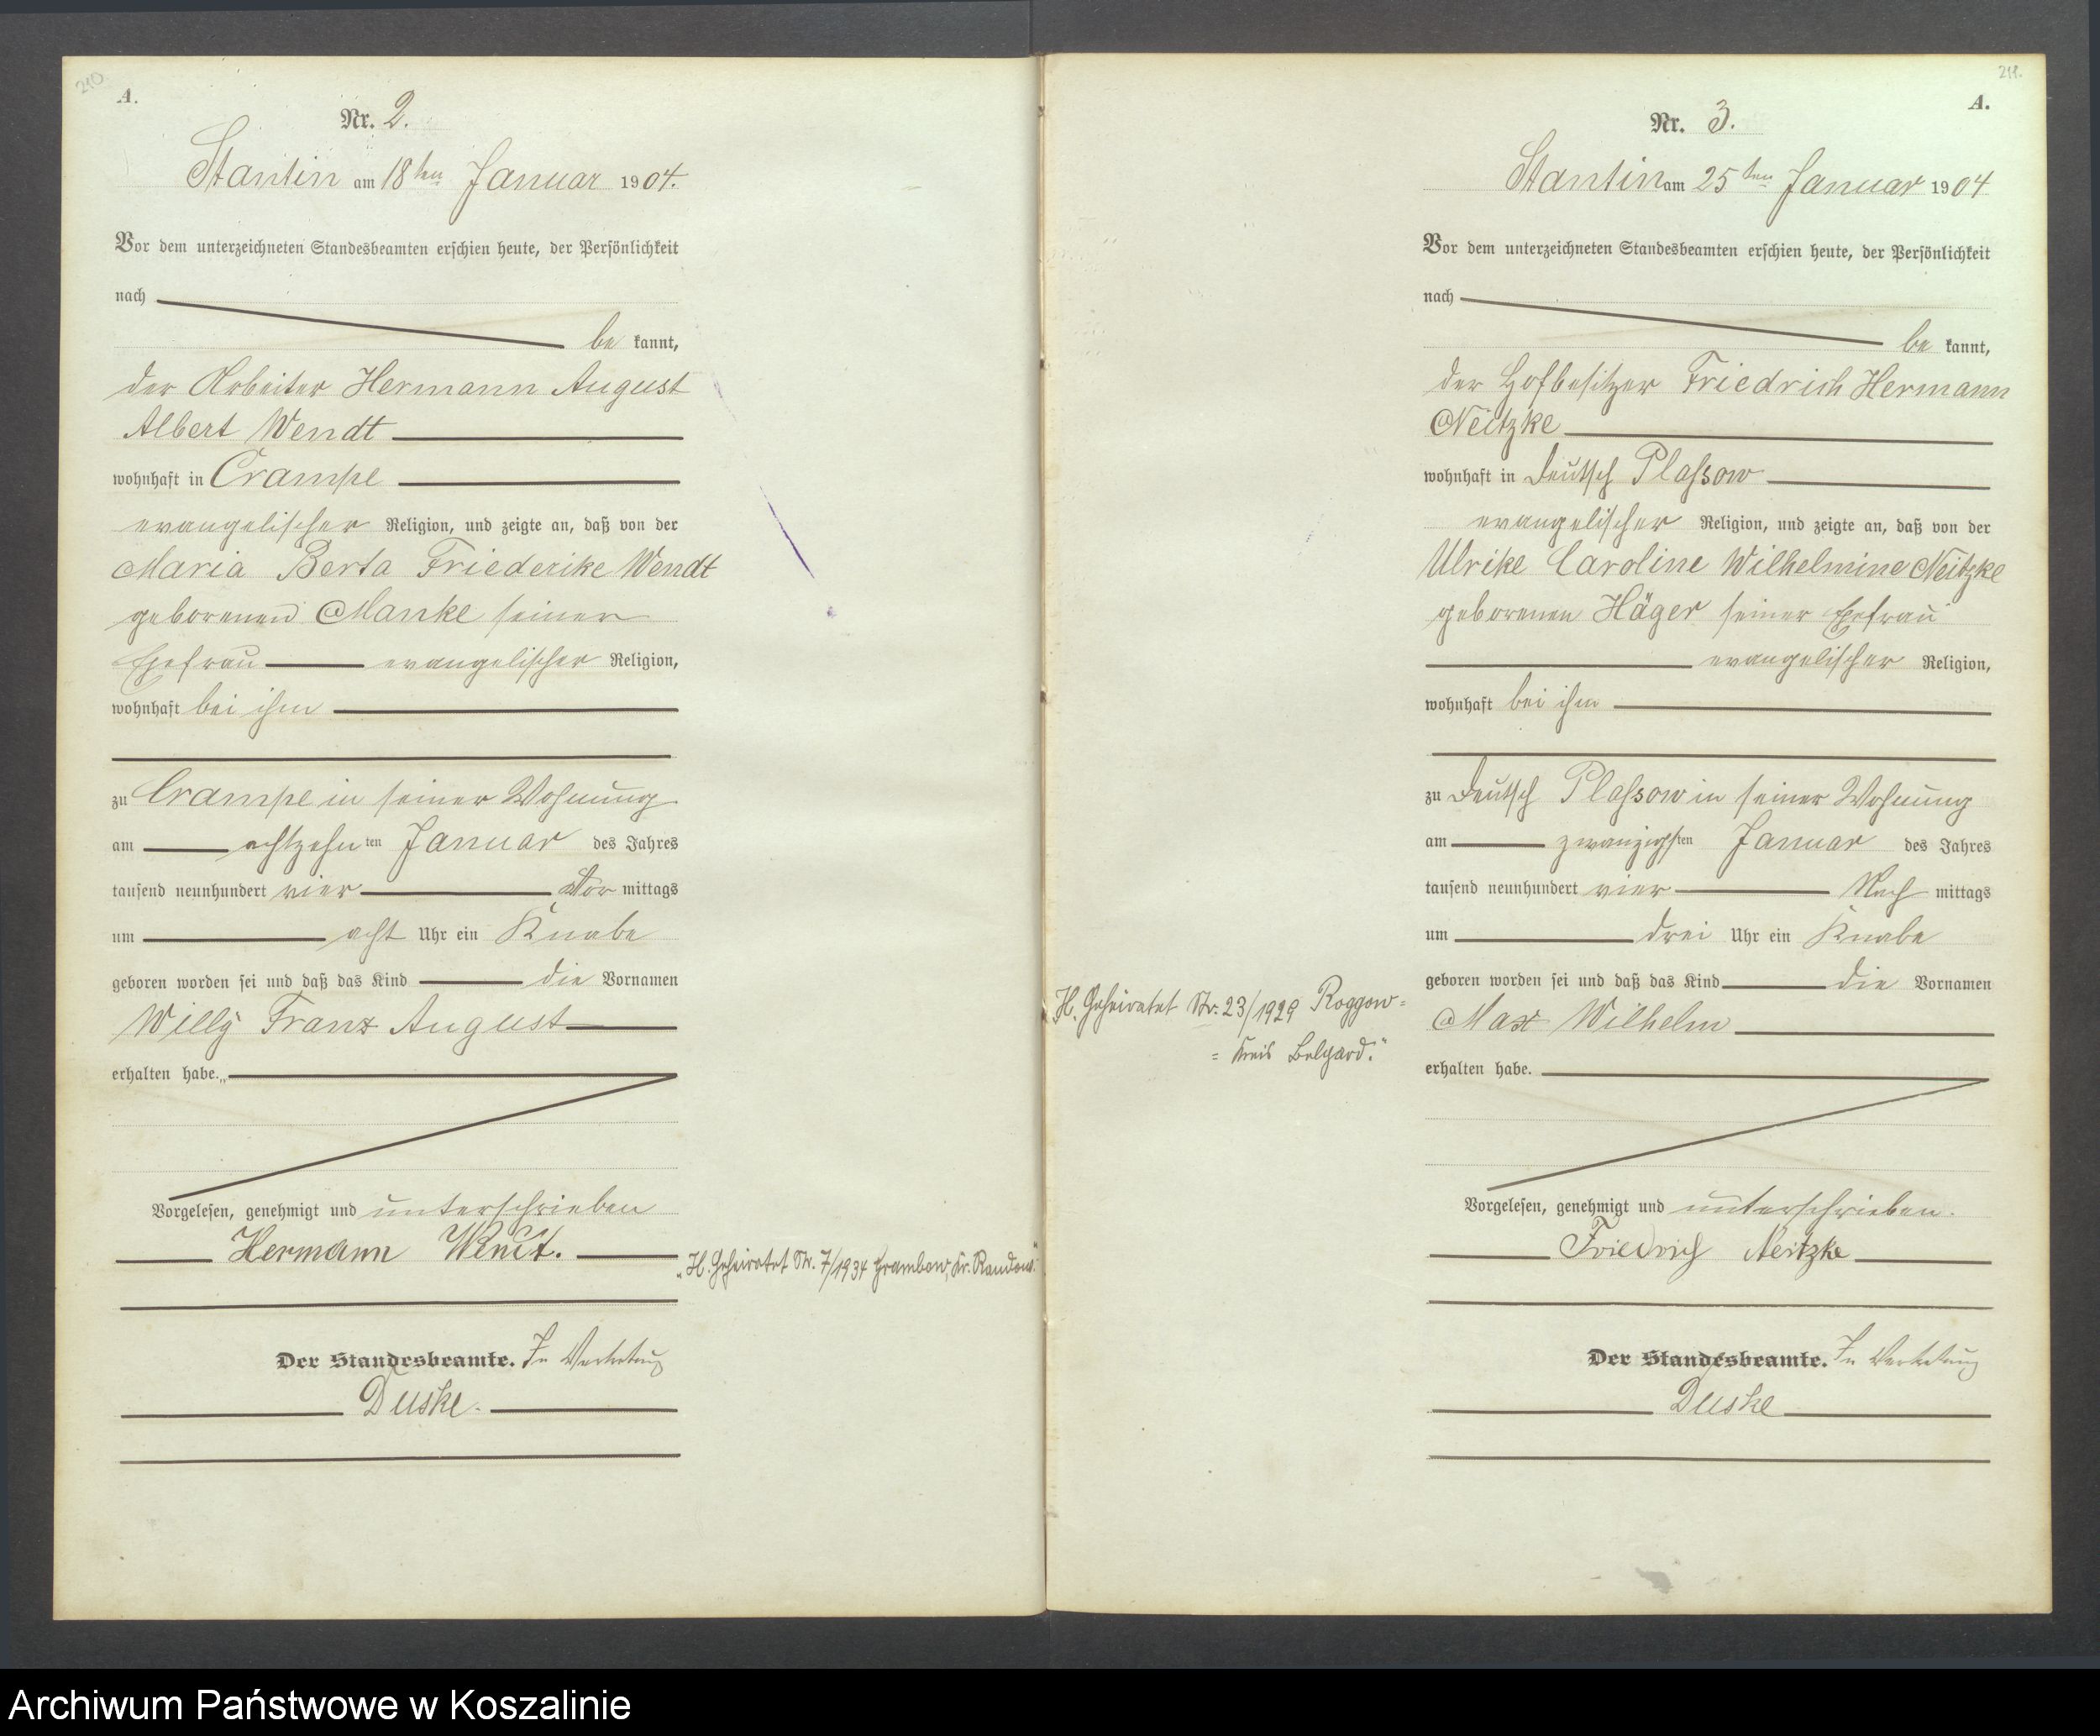 210
A.
Nr. 2.
Stantin am 18ten Januar 1904.
Vor dem unterzeichneten Standesbeamten erschien heute, der Persönlichkeit
nach
be kannt,
der Arbeiter Hermann August
Albert Wendt
wohnhaft in Crampe
evangelischer Religion, und zeigte an, daß von der
Maria Berta Friederike Wendt
geborenen Manke seiner
Ehefrau evangelischer Religion,
wohnhaft bei ihm
zu Crampe in seiner Wohnung
am achtzehnten Januar des Jahres
tausend neunhundert vier Vor mittags
um acht Uhr ein Knabe
geboren worden sei und daß das Kind die Vornamen
Willy Franz August
erhalten habe.
Vorgelesen, genehmigt und unterschrieben
Hermann Wendt.
„H. Geheiratet Nr. 7/1934 Grambow, Kr. Randow."
Der Standesbeamte. In Vertretung
Duske.
211.
A.
Nr. 3.
Stantin am 25ten Januar 1904
Vor dem unterzeichneten Standesbeamten erschien heute, der Persönlichkeit
nach
be kannt,
der Hofbesitzer Friedrich Hermann
Neitzke
wohnhaft in Deutsch Plaßow
evangelischer Religion, und zeigte an, daß von der
Ulrike Caroline Wilhelmine Neitzke
geborenen Häger seiner Ehefrau
evangelischer Religion,
wohnhaft bei ihm
zu Deutsch Plaßow in seiner Wohnung
am zwanzigsten Januar des Jahres
tausend neunhundert vier Nach mittags
um drei Uhr ein Knabe
geboren worden sei und daß das Kind die Vornamen
H. Geheiratet Nr. 23/1929 Roggow=
= Kreis Belgard."
Max Wilhelm
erhalten habe.
Vorgelesen, genehmigt und unterschrieben.
Friedrich Neitzke
Der Standesbeamte. In Vertretung
Duske
Archiwum Państwowe w Koszalinie